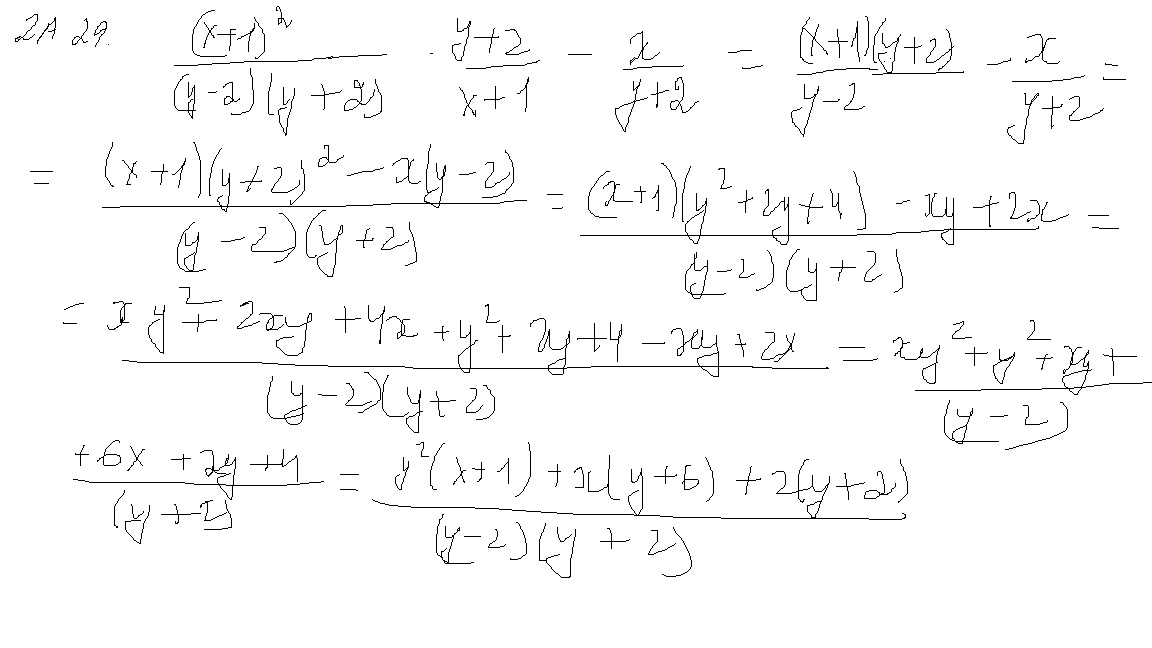 2A 29. \frac{(x+1)^2}{(y-2)(y+2)} \cdot \frac{y+2}{x+1} - \frac{x}{y+2} = \frac{(x+1)(y+2)}{y-2} - \frac{x}{y+2} =
= \frac{(x+1)(y+2)^2 - x(y-2)}{(y-2)(y+2)} = \frac{(x+1)(y^2+2y+4) - xy+2x}{(y-2)(y+2)} =
= \frac{xy^2+2xy+4x+y^2+2y+4-xy+2x}{(y-2)(y+2)} = \frac{xy^2+y^2+xy+}{(y-2)}
\frac{+6x+2y+4}{(y+2)} = \frac{y^2(x+1)+x(y+6)+2(y+2)}{(y-2)(y+2)}